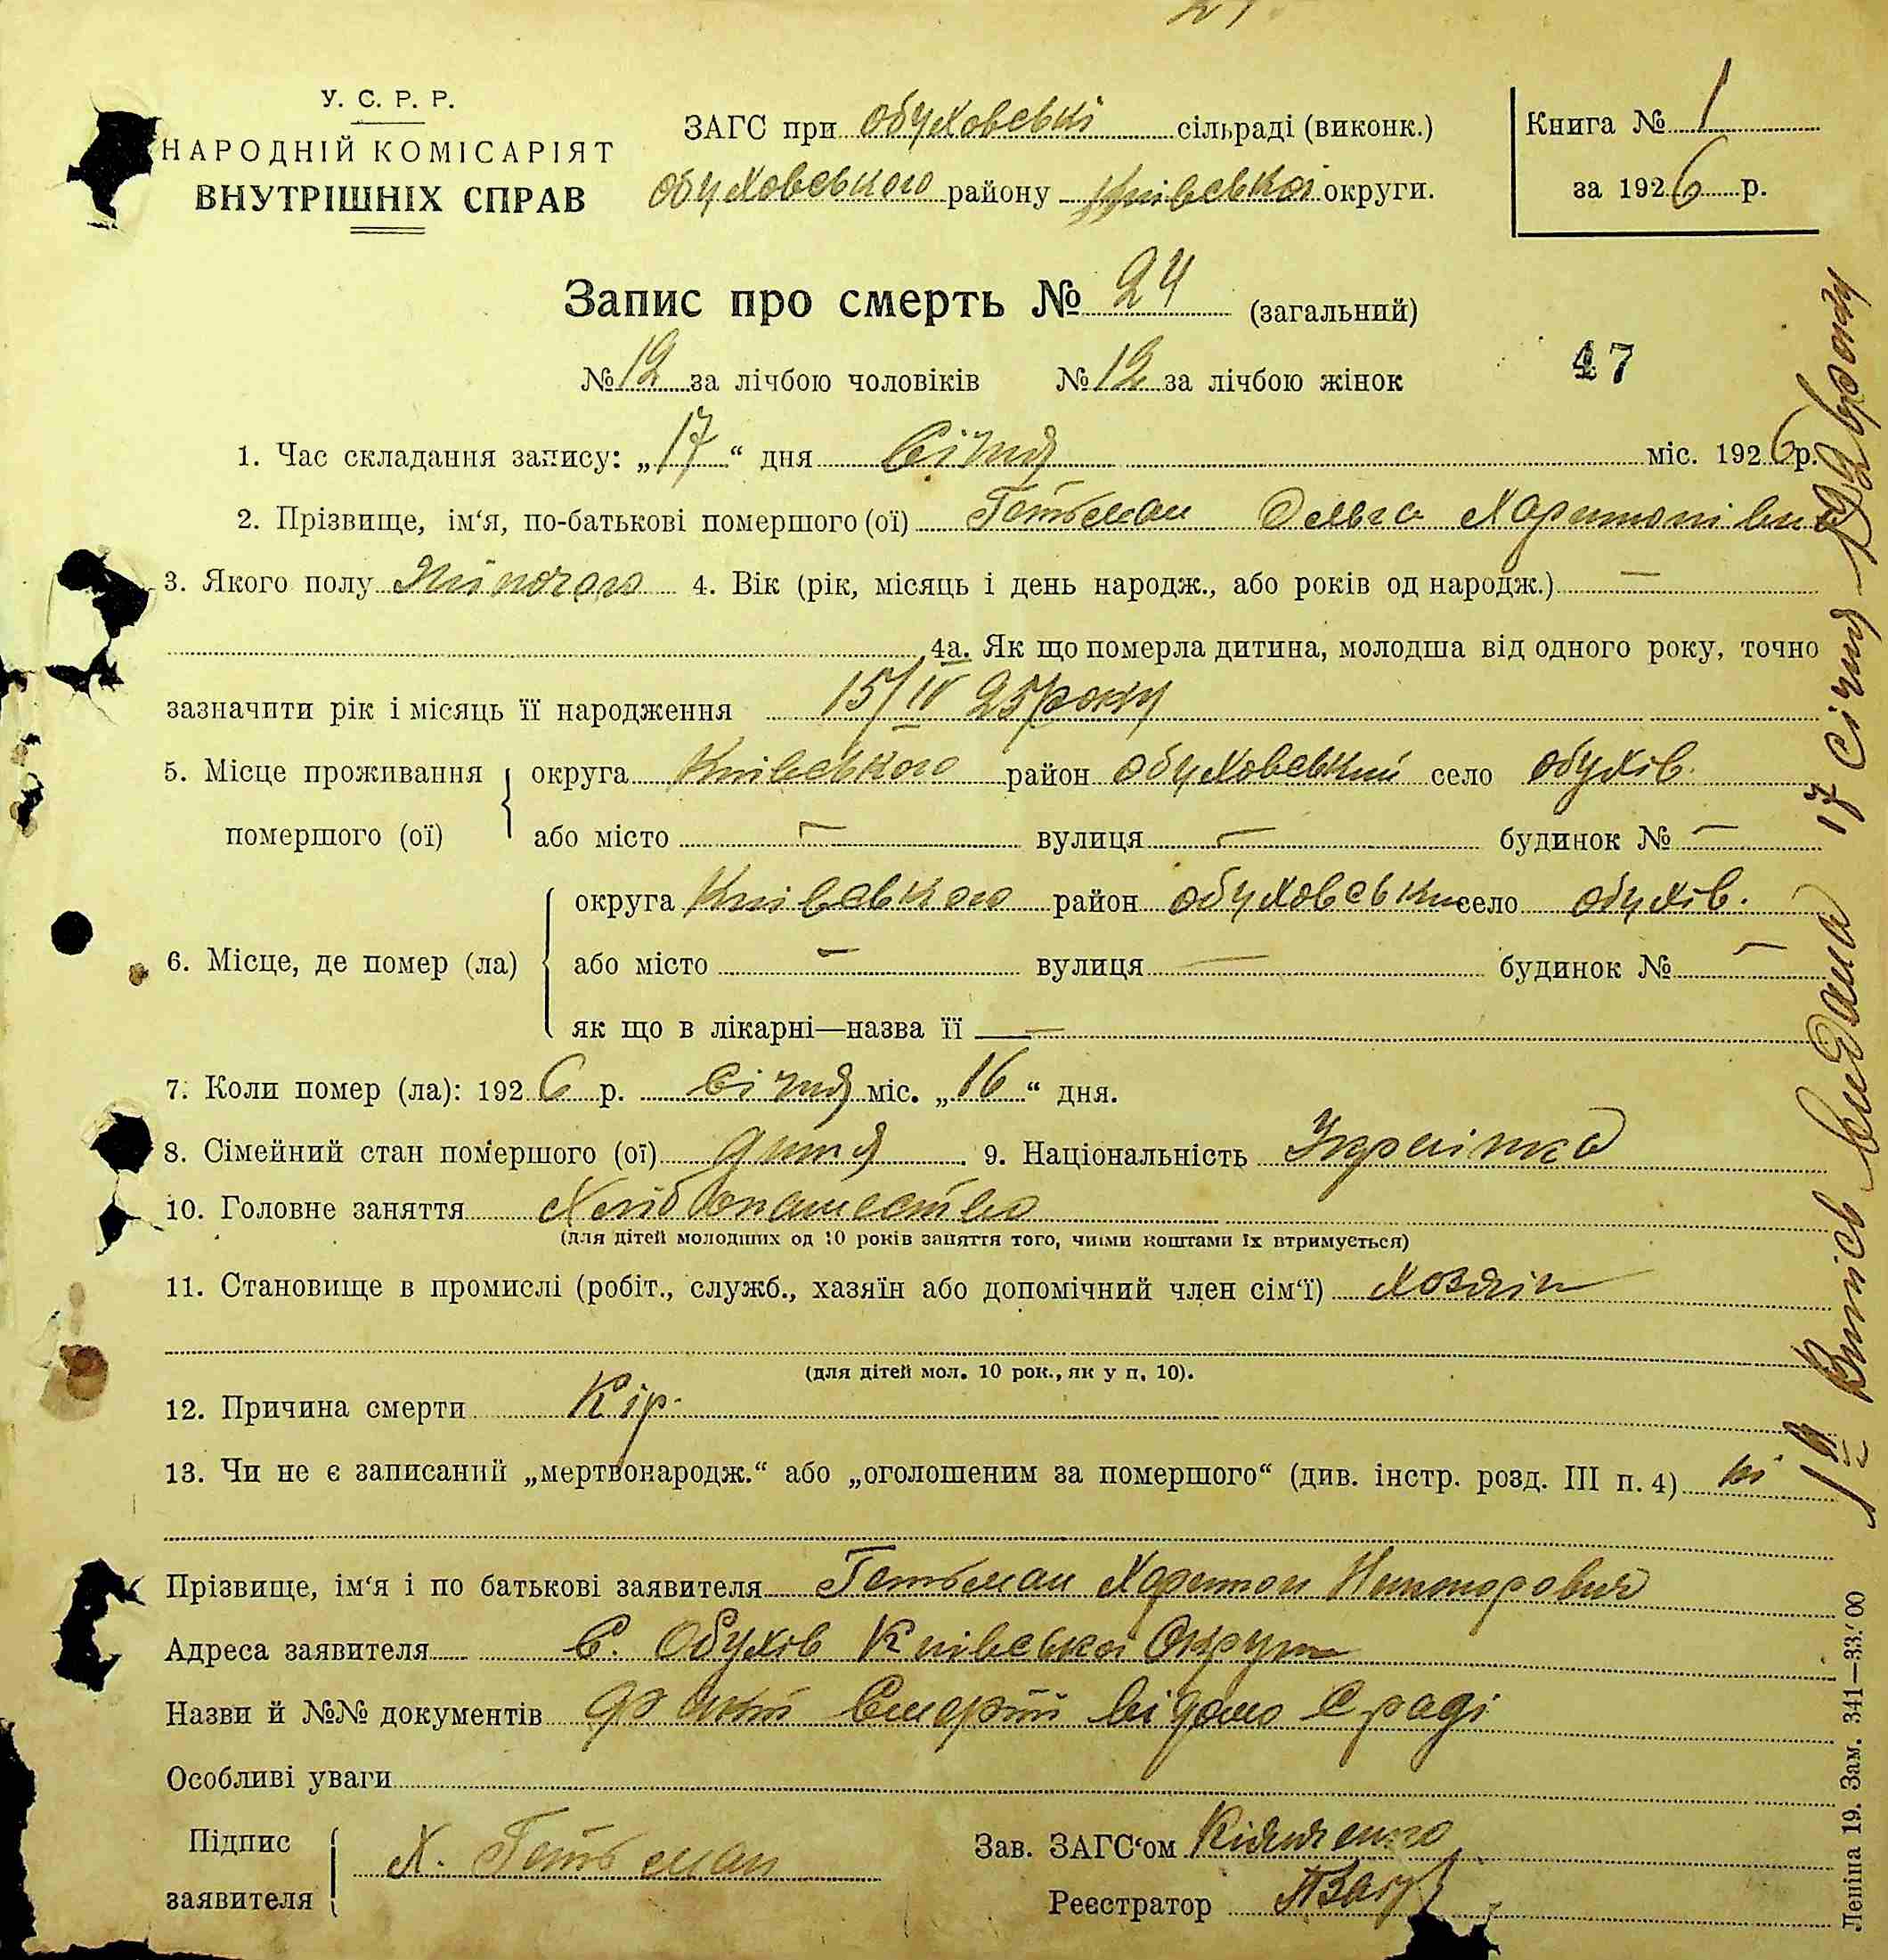 У. С. Р. Р.
НАРОДНІЙ КОМІСАРІЯТ
ВНУТРІШНІХ СПРАВ
ЗАГС при обуховські сільраді (виконк.)
обуховського району Київської округи.
Книга № 1
за 1926 р.
Запис про смерть № 24 (загальний)
№ 12 за лічбою чоловіків № 12 за лічбою жінок
47
1. Час складання запису: „17“ дня Січня міс. 1926 р.
2. Прізвище, ім‘я, по-батькові помершого (ої) Гетьман Ольга Харитонівна
3. Якого полу Жіночого 4. Вік (рік, місяць і день народж., або років од народж.) —
4а. Як що померла дитина, молодша від одного року, точно
зазначити рік і місяць її народження 15/IV 25 року
5. Місце проживання помершого (ої) округа Київського район обуховський село обухів.
або місто — вулиця — будинок № —
6. Місце, де помер (ла) округа Київського район обуховський село обухів.
або місто — вулиця — будинок № —
як що в лікарні—назва її —
7. Коли помер (ла): 1926 р. Січня міс. „16“ дня.
8. Сімейний стан помершого (ої) дитя 9. Національність Українка
10. Головне заняття Хлібопашество
(для дітей молодших од 10 років заняття того, чиїми коштами їх втримується)
11. Становище в промислі (робіт., служб., хазяїн або допомічний член сім‘ї) Хозяін
(для дітей мол. 10 рок., як у п. 10).
12. Причина смерти Кір.
13. Чи не є записаний „мертвонародж.“ або „оголошеним за помершого“ (див. інстр. розд. III п. 4) ні
Прізвище, ім‘я і по батькові заявителя Гетьман Харитон Никонорович
Адреса заявителя С. Обухів Київської Округи
Назви й №№ документів факт Смерти відомо С раді
Особливі уваги
Підпис заявителя Х. Гетьман
Зав. ЗАГС‘ом
Реєстратор
Випись видана 17 Січня 1926 року
Леніна 19. Зам. 341—33.000